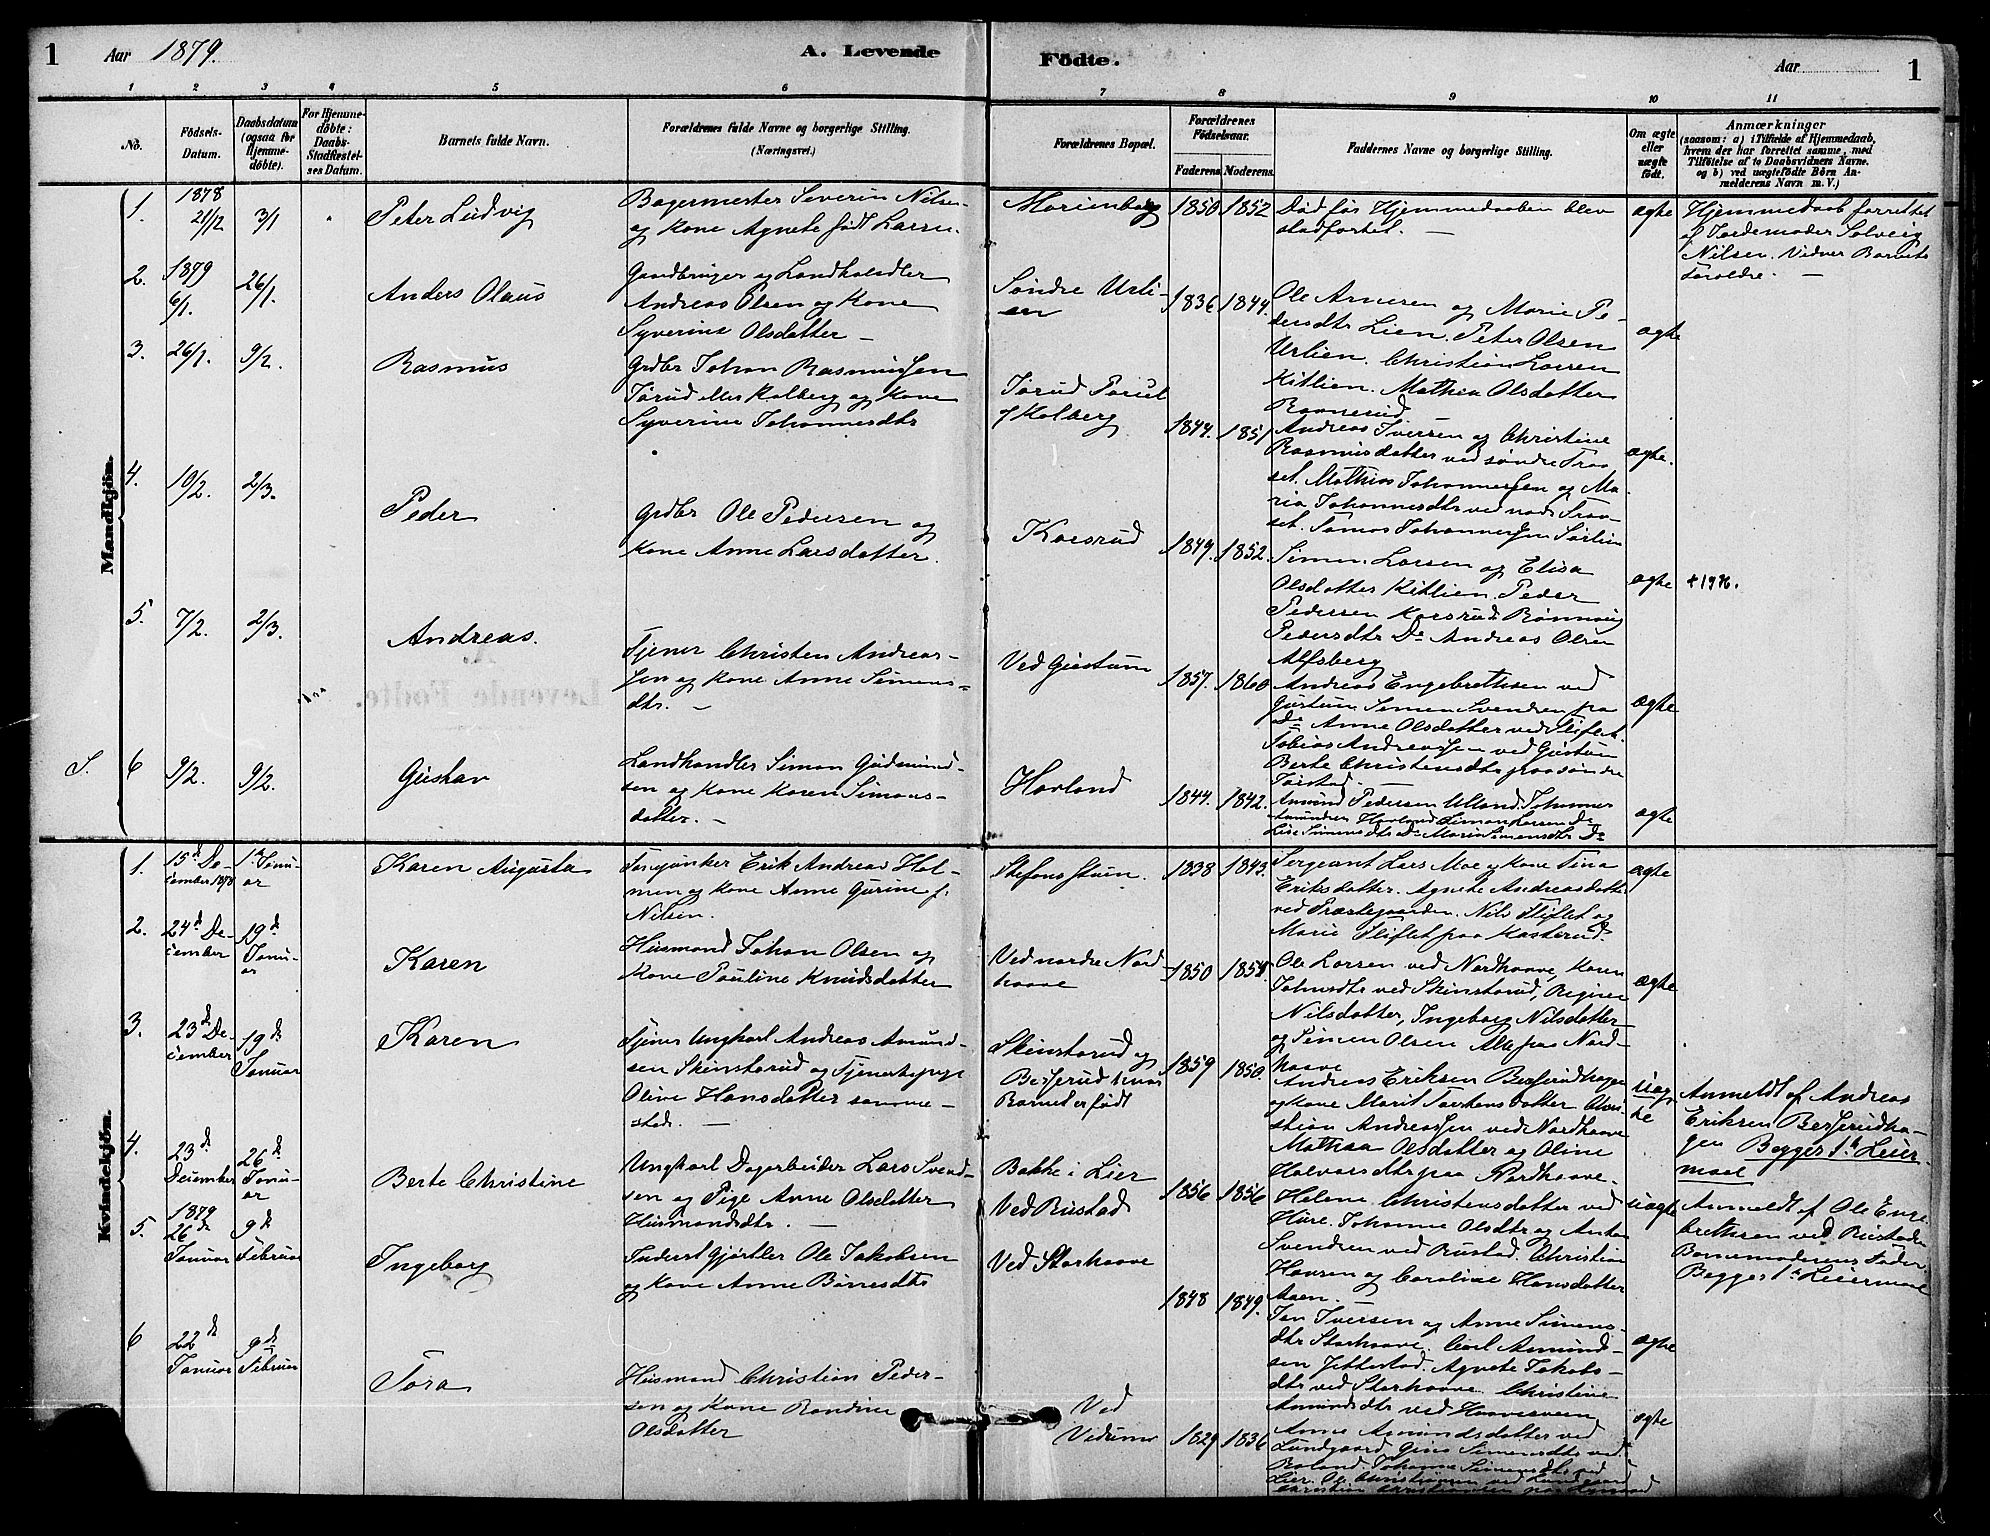 1 Aar 1879. A. Levende Födte. Aar 1
1 2 3 4 5 6 7 8 9 10 11
No.
Födsels-
Datum.
Daabsdatum
(ogsaa for
Hjemme-
döbte).
For Hjemme-
döbte:
Daabs-
Stadfæstel-
ses Datum.
Barnets fulde Navn.
Forældrenes fulde Navne og borgerlige Stilling.
(Næringsvei.)
Forældrenes Bopæl.
Forældrenes
Födselsaar.
Faderens. Moderens.
Faddernes Navne og borgerlige Stilling.
Om ægte
eller
uægte
födt.
Anmærkninger
(saasom: a) i Tilfælde af Hjemmedaab,
hvem der har forrettet samme, med
Tilföielse af to Daabsvidners Navne.
og b) ved uægtefödte Börn An-
melderens Navn m. V.)
Mandkjön.
1.
1878
21/12
3/1
Peter Ludvig
Bagermester Severin Nilsen
og Kone Agnete født Larsen.
Marienborg
1850 1852
Død før Hjemmedaaben blev
stadfæstet. —
ægte
Hjemmedaab forrettet
af Jordemoder Solveig
Nilsen. Vidner Barnets
Foreldre. —
2.
1879
6/1.
26/1.
Anders Olaus
Gaardbruger og Landhandler
Andreas Olsen og Kone
Syverine Olsdatter —
Søndre Urli-
en
1836 1844.
Ole Arnesen og Marie Pe-
dersdtr Lien. Peter Olsen
Urlien. Christian Larsen
Kitlien. Mathea Olsdatter
Ravnerud
ægte
3.
26/1.
9/2.
Rasmus
Grdbr Johan Rasmussen
Tørud eller Kalberg og Kone
Syverine Johannesdtr
1844. 1851
Andreas Iversen og Christine
Rasmusdatter ved søndre Traa
set. Mathias Johannessen og Ma-
ria Johannesdtr ved nord. Traa-
set.
ægte.
4.
10/2.
2/3.
Peder
Grdbr Ole Pedersen og
Kone Anne Larsdatter.
Korsrud
1849. 1852.
Simen Larsen og Elisa
Olsdatter Kitlien. Peder
Pedersen Korsrud. Rønnaug
Pedersdtr Do Andreas Olsen
Alfsberg
ægte
5.
7/2.
2/3.
Andreas.
Tjener Christen Andreas-
sen og Kone Anne Simens-
dtr. —
Ved Gustum
1857. 1860
Andreas Engebrethsen ved
Gustum Simen Svendsen paa
Do Anne Olsdatter ved Sliflet.
Tobias Andreassen ved Gustum
Berte Christensdtr paa søndre
ægte
S.
6
9/2.
9/2.
Gustav
Landhandler Simon Gudmund-
sen og Kone Karen Simons-
datter. —
Havland
1844. 1842.
ægte
Kvindekjön.
1.
15d De-
cember 1878
1ste Janu-
ar
Karen Augusta
Erik Andreas Hol-
men og Kone Anne Gurine f.
Nilsen.
1838 1843.
Sergeant Lars Moe og Kone Tina
Eriksdatter. Agnete Andreasdatter
ved Præstegaarden. Nils Sliflet og
Marie Sliflet paa Kasterud.
ægte
2.
24d De-
cember
19d
Janu-
ar
Karen
Husmand Johan Olsen og
Kone Pauline Knudsdatter
Ved nordre Nord-
haave
1850
Ole Larsen ved Nordhaave, Karen
Johnsdtr ved Skinstarud, Regine
Nilsdatter, Ingeborg Nilsdatter
og Simen Olsen Alle paa Nord-
haave
ægte
3.
23d De-
cember
19d
Januar
Karen
Tjener Ungkarl Andreas Amund-
sen Skinstarud og Tjenestepige
Oline Hansdatter samme-
sted. —
Skinstarud og
Besserud hvor
Barnet er født
1859 1850.
Andreas Eriksen Besserudhagen
og Kone Marit Torstensdatter Chri-
stian Andreassen ved Nordhaave
Mathea Olsdatter og Oline
Halvorsdtr paa Nordhaave.
uæg-
te
Anmeldt af Andreas
Eriksen Besserudha-
gen Begges 1ste Leier-
maal
4.
23d
December
26d
Janu-
ar
Berte Christine
Ungkarl Dagarbeider Lars Svend-
sen og Pige Anne Olsdatter
Husmandsdtr. —
Bakke i Lier
Ved Rustad
1856 1856
Helene Christensdatter ved
Hure. Johanne Olsdtr og Anton
Svendsen ved Rustad. Christian
Hansen og Caroline Hansdatter
uægte
Anmeldt af Ole Enge-
brethsen ved Rustad
Barnemoderens Fader.
Begges 1ste Leiermaal
5.
1879
26d
Januar
9d
Februar
Ingeborg
Inderst Gjørtler Ole Jakobsen
og Kone Anne Børresdtr
Ved Storhaave
1848 1849.
Jan Iversen og Anne Simens-
dtr Storhaave. Carl Amund-
sen Jetterstad. Agnete Jakobs-
dtr ved Storhaave. Christine
Amundsdtr ved
ægte
6
22d
Januar
9d
Februar
Tora
Husmand Christian Peder-
sen og Kone Randine
Olsdatter
Ved
1829 1836
Anne Amundsdatter ved
Lundgaard. Gina Simensdtr ved
Roland. Johanne Simensdtr ved
Lier. Ole Christiansen ved Lundgaard
ægte